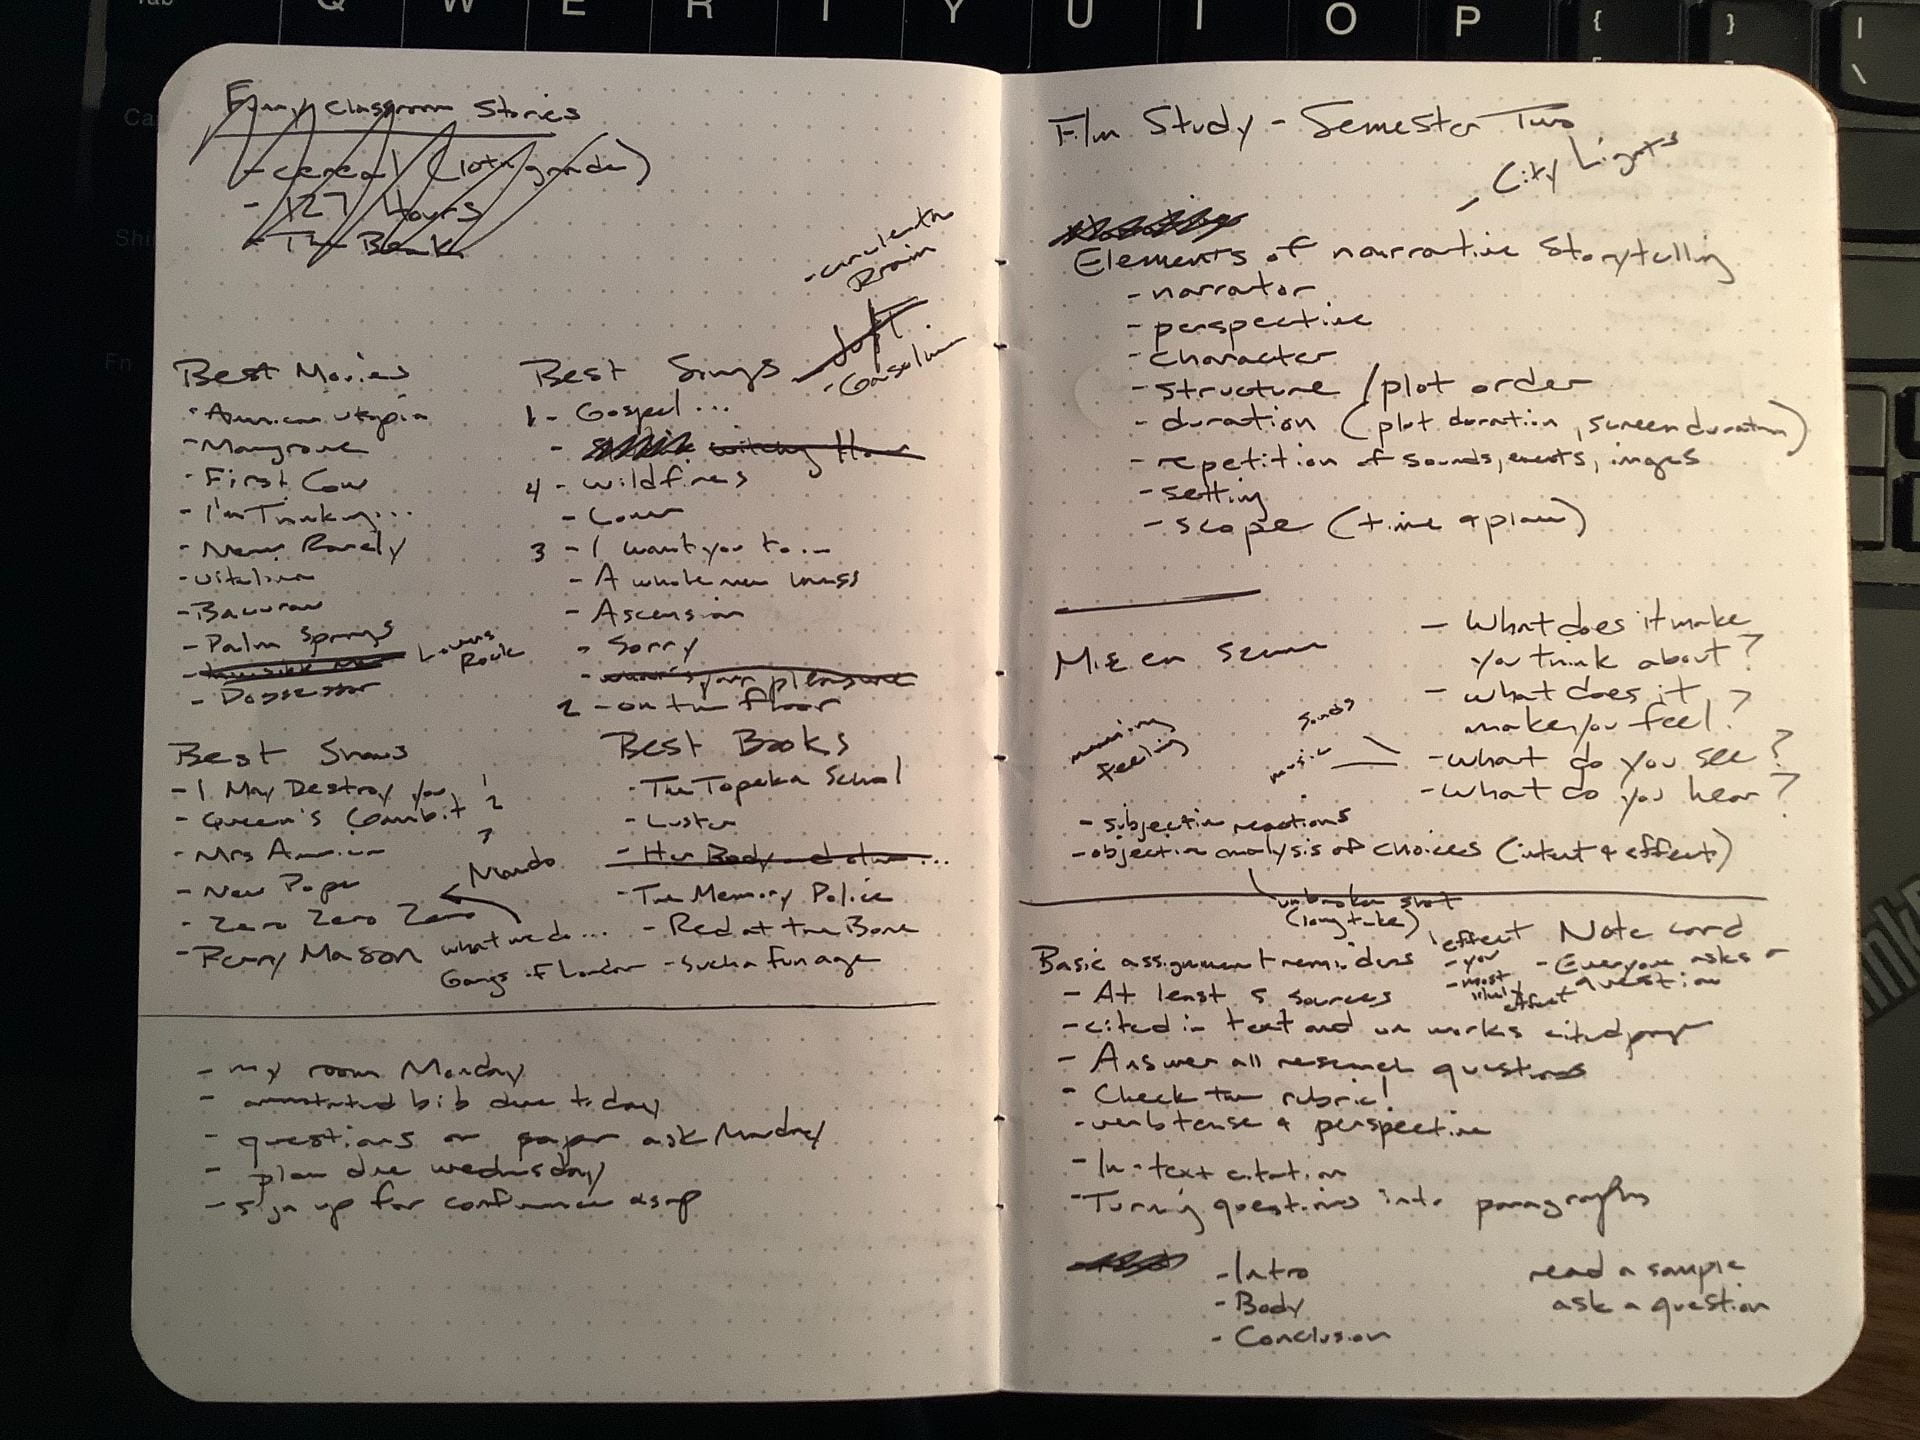 Tab
Q W E R T Y U I O P { }
[ ]
| \
Fn
Funny Classroom Stories
- cereal (10th grade)
- 127 Hours
- The Bank
Best Movies
- American Utopia
- Mangrove
- First Cow
- I'm Thinking...
- Never Rarely
- Vitalina
- Bacurau
- Palm Springs
- Invisible Man
Lovers Rock
- Possessor
- circulatn
Drain
- Gasoline
Best Songs
1 - Gospel...
- witching Hour
4 - wildfires
- Cover
3 - I want you to...
- A whole new mess
- Ascension
- Sorry
- what's your pleasure
2 - on the floor
Best Shows
- I May Destroy you 1
- Queen's Gambit 2
- Mrs America 3
- New Pope
Mando
- Zero Zero Zero
- Perry Mason
what we do...
Gangs of London
Best Books
- The Topeka School
- Luster
- Her Body and other...
- The Memory Police
- Red at the Bone
- Such a Fun age
- my room Monday
- annotated bib due today
- questions on paper ask Monday
- plan due wednesday
- sign up for conference asap
Film Study - Semester Two
- City Lights
Elements of narrative storytelling
- narrator
- perspective
- character
- structure / plot order
- duration (plot duration, screen duration)
- repetition of sounds, events, images
- setting
- scope (time & place)
Mise en scene
- What does it make
you think about?
- what does it
make you feel?
- what do you see?
- what do you hear?
meaning
feeling
sounds
music
- subjective reactions
- objective analysis of choices (intent & effect)
unbroken shot
(long take)
Basic assignment reminders
effect
- you
- most likely
effect
Note card
- Everyone asks a
question
- At least 5 sources
- cited in text and on works cited page
- Answer all research questions
- Check the rubric!
- verb tense & perspective
- In-text citation
- Turning questions into paragraphs
- Intro
- Body
- Conclusion
read a sample
ask a question